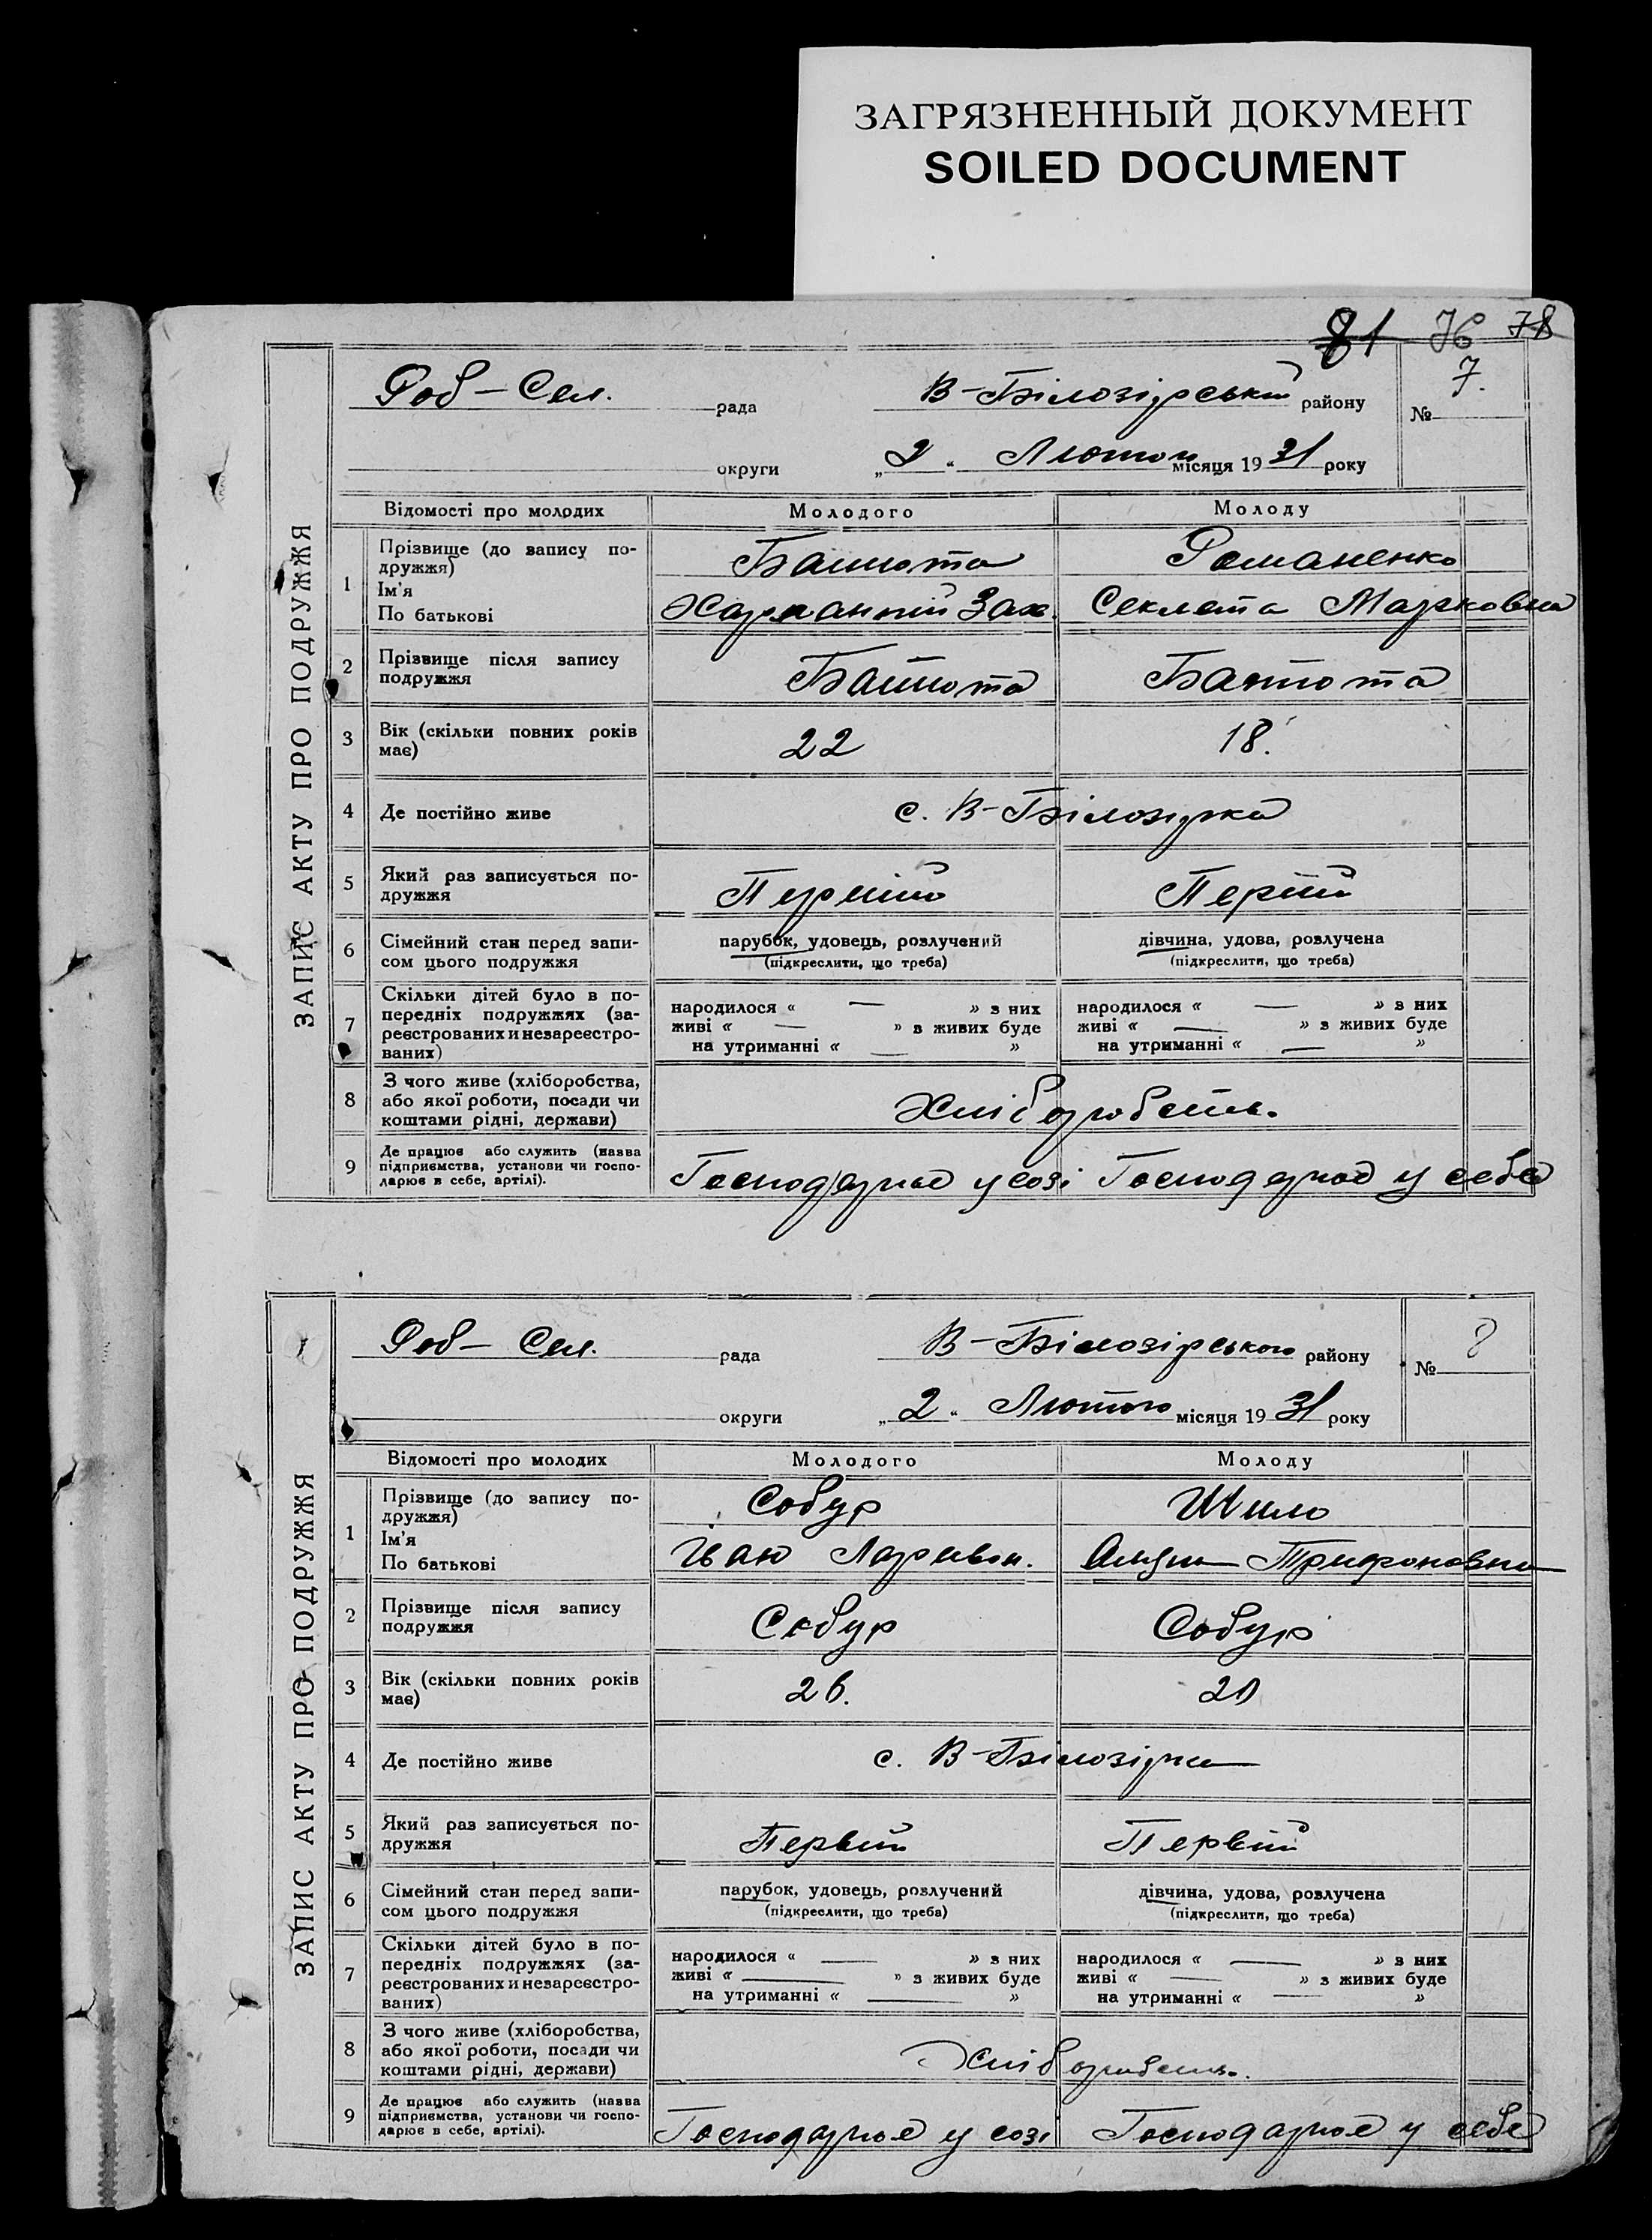 ЗАГРЯЗНЕННЫЙ ДОКУМЕНТ
SOILED DOCUMENT
81 76 78
ЗАПИС АКТУ ПРО ПОДРУЖЖЯ
Роб-Сел. рада В-Білозірський району № 7.
округи „2“ Лютого місяця 1931 року
Відомості про молодих Молодого Молоду
1 Прізвище (до запису по-
дружжя)
Ім'я
По батькові
Романенко
Зах. Секлета Марковна
2 Прізвище після запису
подружжя
3 Вік (скільки повних років
має)
22 18.
4 Де постійно живе
с. В-Білозірка
5 Який раз записується по-
дружжя
Перший Перший
6 Сімейний стан перед запи-
сом цього подружжя
парубок, удовець, розлучений
(підкреслити, що треба)
дівчина, удова, розлучена
(підкреслити, що треба)
7 Скільки дітей було в по-
передніх подружжях (за-
реєстрованих и незареєстро-
ваних)
народилося « — » з них
живі « — » з живих буде
на утриманні « — »
народилося « — » з них
живі « — » з живих буде
на утриманні « — »
8 З чого живе (хліборобства,
або якої роботи, посади чи
коштами рідні, держави)
Хліборобств.
9 Де працює або служить (назва
підприємства, установи чи госпо-
дарює в себе, артілі).
Господарює у созі Господарює у себе
ЗАПИС АКТУ ПРО ПОДРУЖЖЯ
Роб-Сел. рада В-Білозірського району № 8
округи „2“ Лютого місяця 1931 року
Відомості про молодих Молодого Молоду
1 Прізвище (до запису по-
дружжя)
Ім'я
По батькові
Собур Шило
Іван Ларивон. Трифоновна
2 Прізвище після запису
подружжя
Собур Собур
3 Вік (скільки повних років
має)
26. 20
4 Де постійно живе
с. В-Білозірка
5 Який раз записується по-
дружжя
Первій Первій
6 Сімейний стан перед запи-
сом цього подружжя
парубок, удовець, розлучений
(підкреслити, що треба)
дівчина, удова, розлучена
(підкреслити, що треба)
7 Скільки дітей було в по-
передніх подружжях (за-
реєстрованих и незареєстро-
ваних)
народилося « — » з них
живі « — » з живих буде
на утриманні « — »
народилося « — » з них
живі « — » з живих буде
на утриманні « — »
8 З чого живе (хліборобства,
або якої роботи, посади чи
коштами рідні, держави)
Хліборобств.
9 Де працює або служить (назва
підприємства, установи чи госпо-
дарює в себе, артілі).
Господарює у созі Господарює у себе